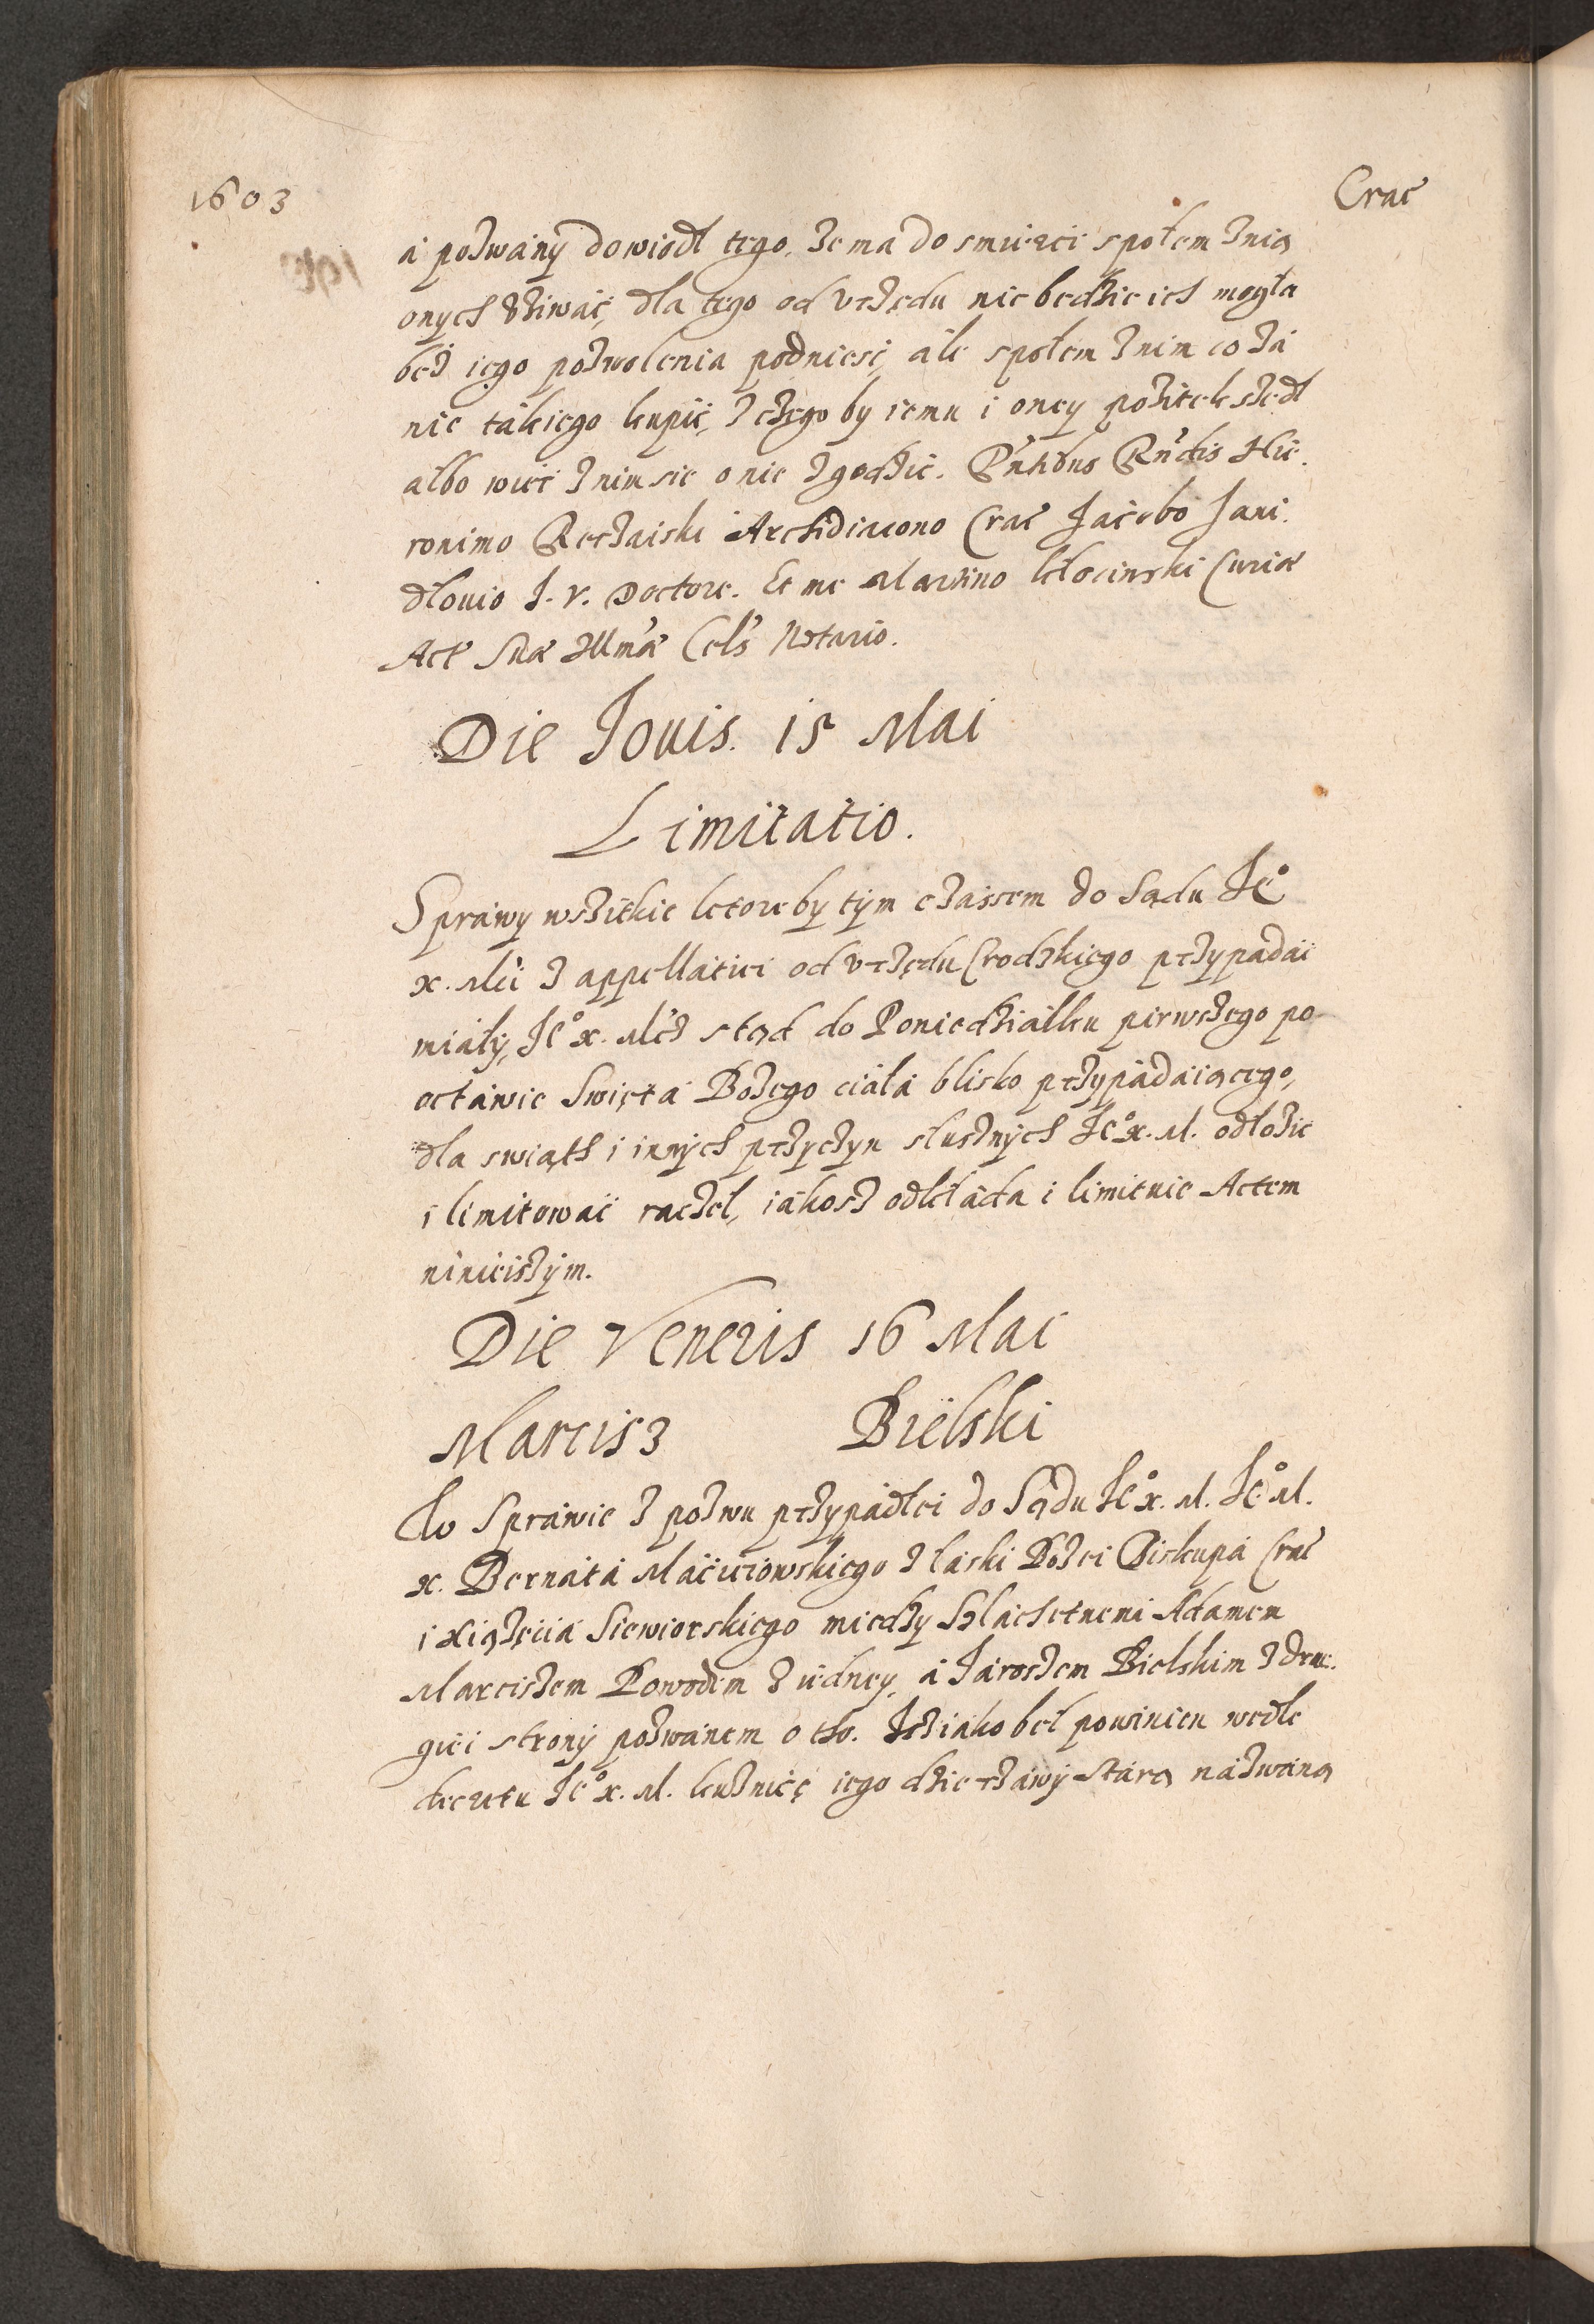 1603
Crac
á pozwány dowiodł tego, że ma do smierći społem z nią
onych vżiwáć, dla tego od vrzędu nie bedzie ich mogła
bez iego pozwolenia podnieść, ále społem z nim co zá
nie tákiego kupić, z czego by iemu i oney pożitek szedł
álbo wiec z nim sie o nie zgodzić. Pntibus Rndis Hie.
ronimo Reczaiski Archidiacono Crac Jacobo Jani.
dlouio J. V. Doctore. Et me Martino Klocinski Curiæ
Act Suæ Illmæ Cels Notario.
Die Jouis. 15 Mai
Limitatio.
Spráwy wszitkie ktoreby tym czássem do Sądu Je°
x. Mci z appellatiei od vrzędu Grodzkiego przypadáć
miáły, Je° x. Mcz stąd do Poniedziáłku pierwszego po
octáwie Swiętá Bożego ciáłá blisko przypádaiącego,
dla swiąth i innych przyczyn słusznych Je° x. M. odłożić
i limitowáć raczeł, iákosz odkłáda i limituie Actem
ninieiszym.
Die Veneris 16 Mai
Marcisz Bielski
Wo Spráwie z pozwu przypádłei do Sądu Je° x. M. Je° M.
x. Bernatá Máćieiowskiego z łáski Bożei Biskupá Crac
i Xiążęćiá Siewiorskiego miedzy Szláchetnemi Adamem
Marciszem Powodem z iedney, á Jároszem Bielskim z dru.
giei strony pozwánem o tho. Jż iáko beł powinien wedle
decretu Je° x. M. kuźnicę iego dzierżáwy Stárą názwáną